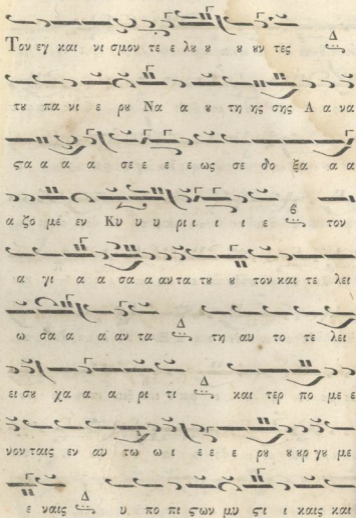 Τον εγ και νι σμον τε ε λου ου ου ουν τες Δ
του πα νι ε ρου Να α ου τη ης σης Α α να
ϛα α α α σε ε ε ε ως σε δο ξα α α
α ζο με εν Κυ υ υ ρι ι ι ι ε τον
α γι α α σα α αν τα του ου τον και τε λει
ω σα α α αν τα Δ τη αυ το τε λει
ει σου χα α α ρι τι Δ και τερ πο με ε
νον ταις εν αυ τω ω ι ε ε ε ρου ουρ γου με
ε ναις Δ υ πο πι ϛων μυ ϛι ι καις και